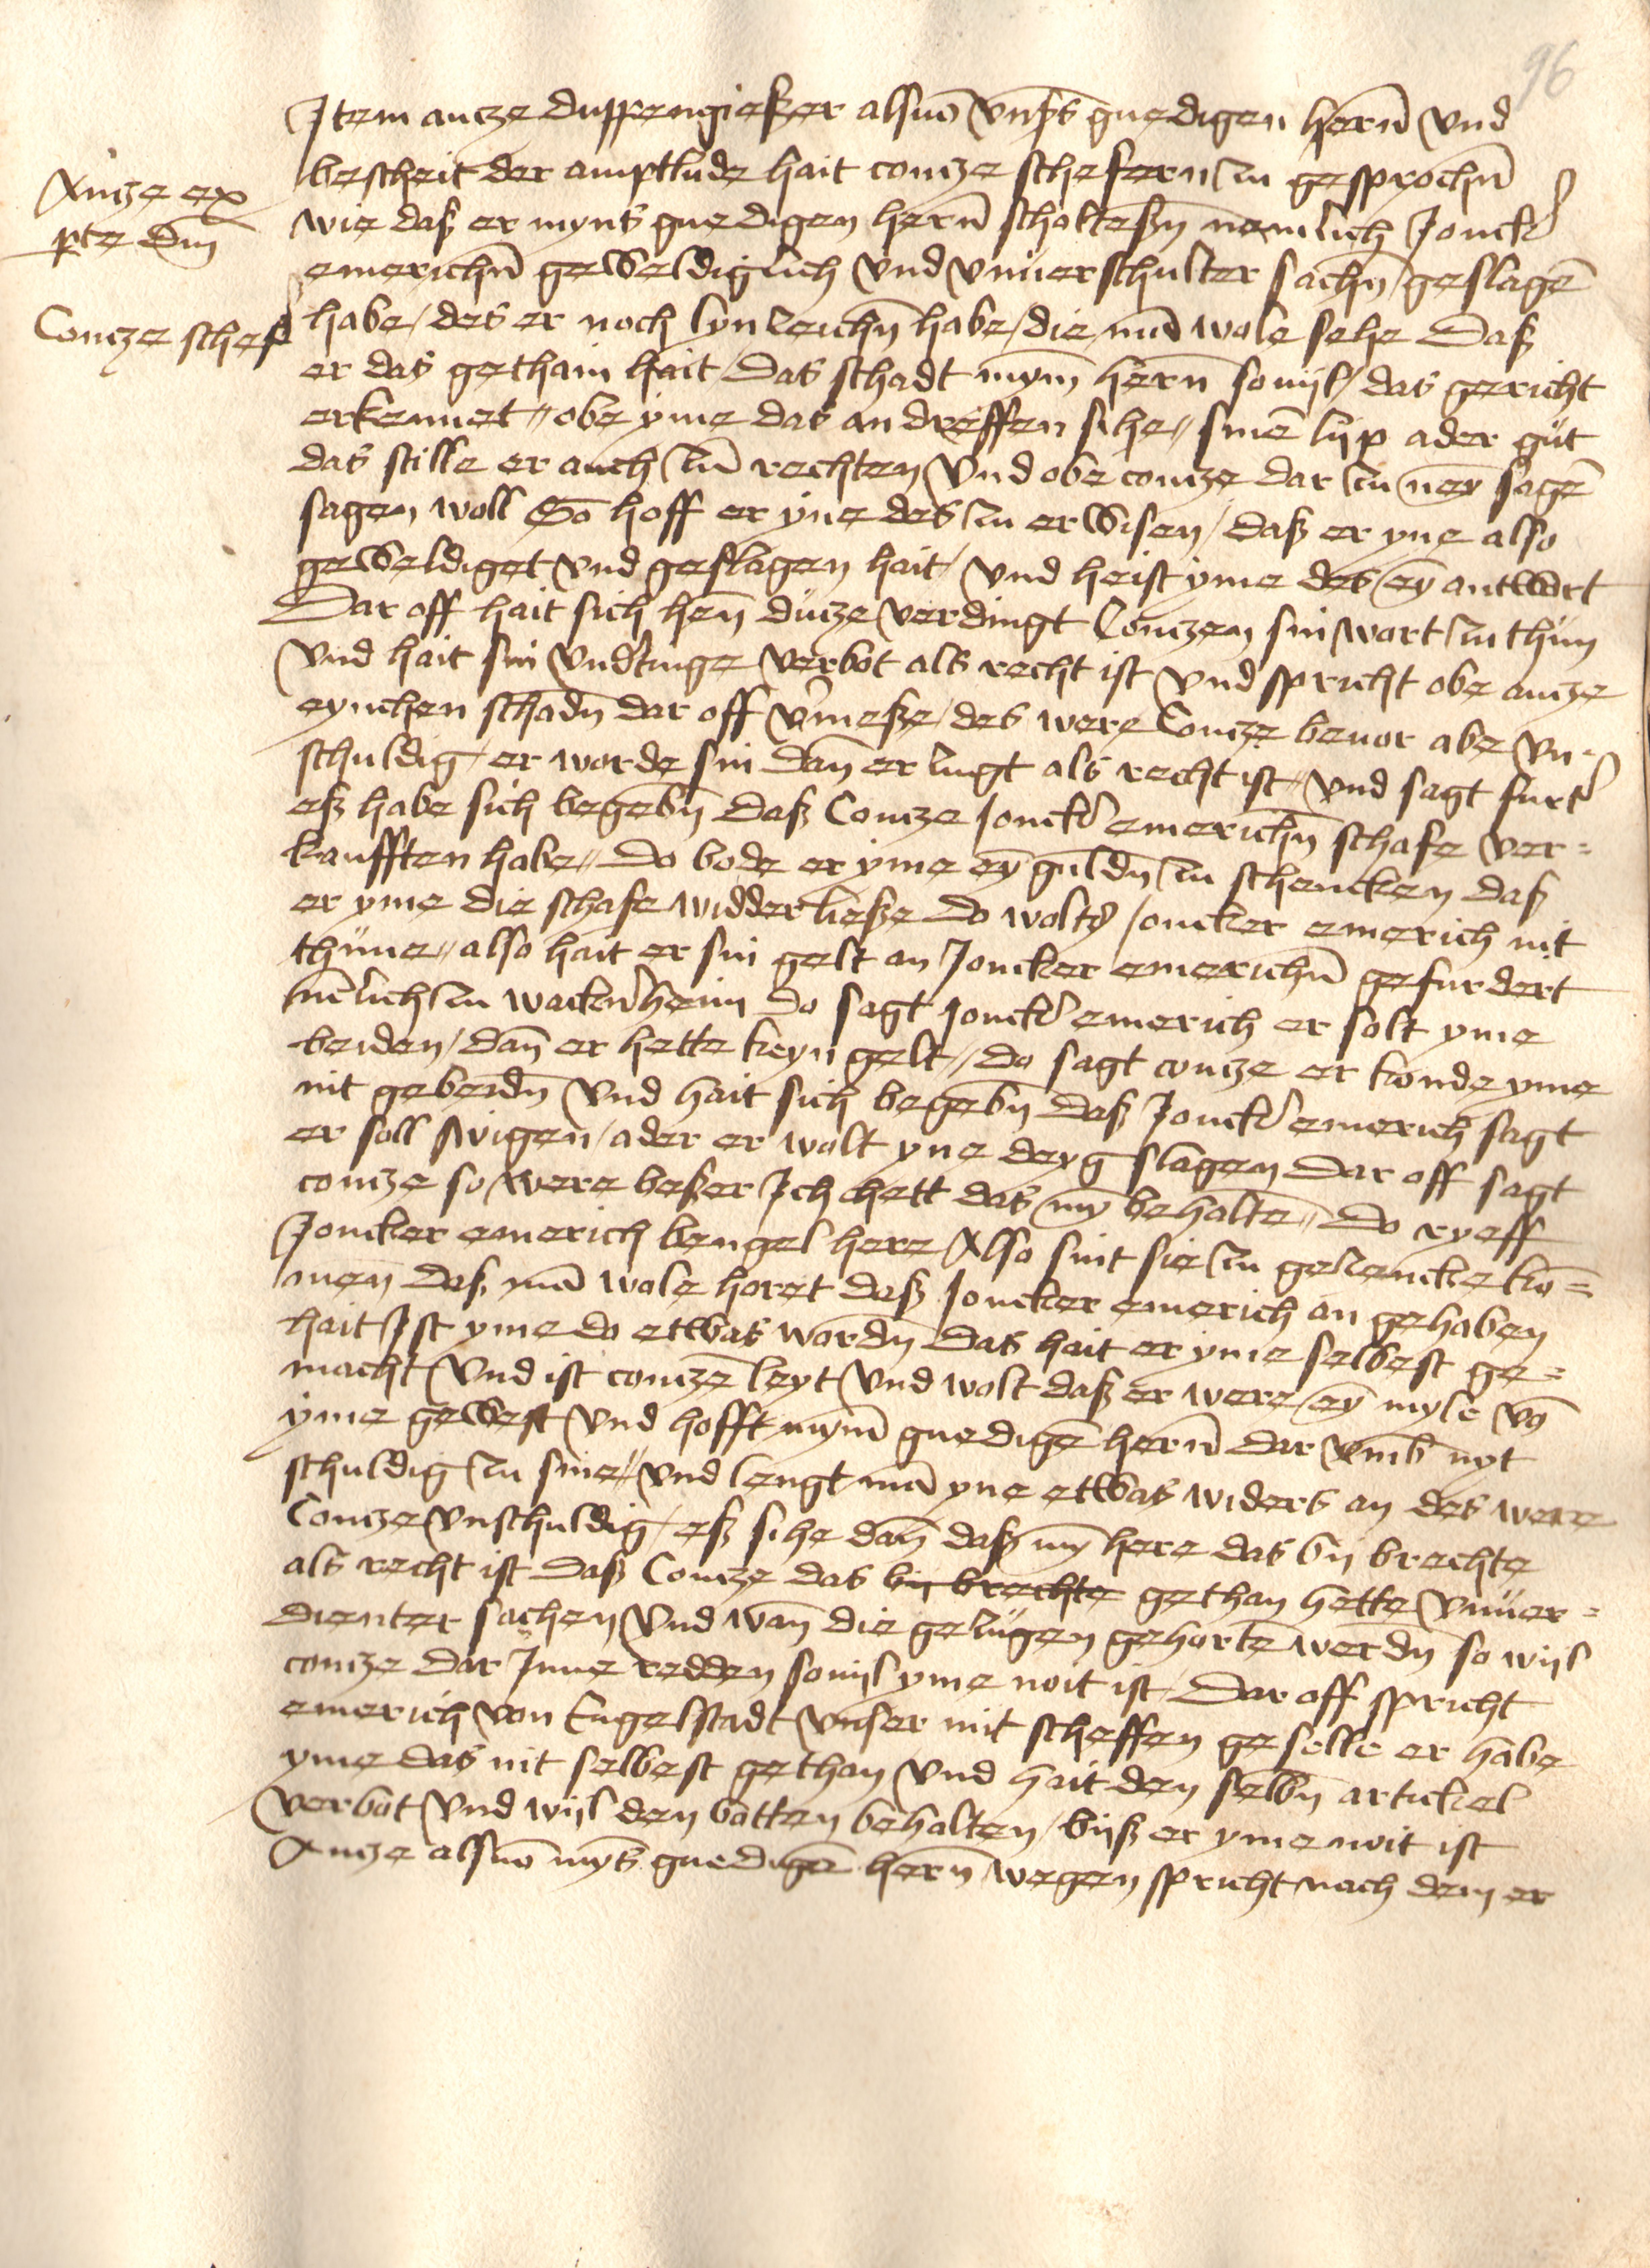 96
Item antze duppengießer als vō vnßs gnedigen hern̄ vnd
bescheit der amptlude hait contze schefern zu gesprochn̄
Antze ex
wie daß er myns gnedigen hern̄ scholteßn nemlich Jonck̄
pte dm̄
emerichn̄ geweldiglich vnd vnuerschulter sachn̄ geslagē
Contze schef
habe / des er noch lynzeichn̄ habe / die mā wole sehe Daß
er das gethain hait / Das schadt mym̄ hern̄ so vijl / das gericht
erkennet // obe yme das an dreffen sihe // sinē lijp ader gut
das stille er auch zū rechten Vnd obe contze dar zu ney sagē
sagen woll So hoff er yne des zu erwisen / daß er yne also
geweldiget vnd geslagen hait / vnd heist yme des ey antwort
Dar off hait sich hen̄ dutze verdingt Contzen sin wort zu thun
Vnd hait sin vnd̄tinge verbot als recht ist Vnd spricht obe antze
eynchen schadn̄ dar off v̄meße / des were Contze beuor abe vn-
schuldig / er worde sin dan̄ erzugt als recht ist // vnd sagt furt̄
eß habe sich begebn̄ Daß Contze Jonck̄ emerichn̄ schafe ver-
kaufften habe // Do bode er yme ey guldn̄ zu schencken daß
er yme die schafe widder ließe Do wolts Joncker emerich nit
thune // also hait er sin gelt an Joncker emerichn̄ gefurdert
nēlich zu wack̄nheim Do sagt Jonck̄ emerich er solt yme
beiden / dan̄ er hette keyn gelt // do sagt contze er konde yme
nit gebeidn̄ Vnd hait sich begebn̄ daß Jonck̄ emerich sagt
er soll swigen / ader er wolt yne deyg slagen Dar off sagt
contze so were beßer Ich hett das my behaltē // Do ryeff
Joncker emerich bengel here Also sint sie zu gezencke ko=
men̄ daß mā wole horet daß Joncker emerich an gehaben
hait Ist yme do etwas wordn̄ Das hait er yme selbest ge=
macht Vnd ist contzē leyt Vnd wolt daß er were ey myle vō
yme gewest Vnd hofft mym̄ gnedigē hern̄ dar vmb nyt
schuldig zu sine // vnd lengt mā yne etwas widers an des were
Contze vnschuldig / eß sihe dan̄ daß my here das bij brechte
als recht ist Daß Contze das bij brechte gethan hette vnuer=
dienter sachen Vnd wan̄ die gezugen gehortē werdn̄ so wijl
contze dar Inne redden so vijl yme noit ist / Dar off spricht
emerich von Engelstadt vnser mit scheffen geselle er habe
yme das nit selbest gethan Vnd hait den selbn̄ artickel
verbot Vnd wijl den botten behalten / bijß er yme noit ist
Antze als vō myns gnedigē hern̄ wegen spricht nach dem er